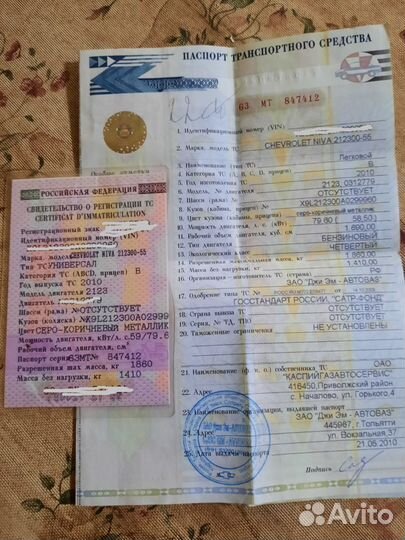 ПАСПОРТ ТРАНСПОРТНОГО СРЕДСТВА
63 МТ 847412
1. Идентификационный номер (VIN)
2. Марка, модель ТС CHEVROLET NIVA 212300-55
3. Наименование (тип ТС) Легковой
4. Категория ТС (А, В, С, D, прицеп) В
5. Год изготовления ТС 2010
6. Модель, № двигателя 2123, 0312779
7. Шасси (рама) № ОТСУТСТВУЕТ
8. Кузов (кабина, прицеп) № X9L212300A0299960
9. Цвет кузова (кабины, прицепа) серо-коричневый металлик
10. Мощность двигателя, л. с. (кВт) 79.60 ( 58.50 )
11. Рабочий объем двигателя, куб. см 1,690.00
12. Тип двигателя БЕНЗИНОВЫЙ
13. Экологический класс ЧЕТВЕРТЫЙ
14. Разрешенная максимальная масса, кг 1,860.00
15. Масса без нагрузки, кг 1,410.00
16. Организация - изготовитель ТС (страна) РФ
ЗАО "Джи Эм - АВТОВАЗ"
17. Одобрение типа ТС №
ГОССТАНДАРТ РОССИИ, "САТР-ФОНД"
18. Страна вывоза ТС ОТСУТСТВУЕТ
19. Серия, № ТД, ТПО ОТСУТСТВУЕТ
20. Таможенные ограничения НЕ УСТАНОВЛЕНЫ
21. Наименование (ф. и. о.) собственника ТС ОАО
"КАСПИЙГАЗАВТОСЕРВИС"
22. Адрес 416450,Приволжский район
с. Началово, ул. Горького,4
23. Наименование организации, выдавшей паспорт
ЗАО "Джи Эм - АВТОВАЗ"
24. Адрес 445967, г.Тольятти
ул. Вокзальная,37
25. Дата выдачи паспорта 21.05.2010
Подпись
Особые отметки
РОССИЙСКАЯ ФЕДЕРАЦИЯ
СВИДЕТЕЛЬСТВО О РЕГИСТРАЦИИ ТС
CERTIFICAT D'IMMATRICULATION
Регистрационный знак
Идентификационный номер (VIN)
Марка, модель CHEVROLET NIVA 212300-55
Тип ТС УНИВЕРСАЛ
Категория ТС (ABCD, прицеп) В
Год выпуска ТС 2010
Модель двигателя 2123
Двигатель №
Шасси (рама) № ОТСУТСТВУЕТ
Кузов (коляска) № X9L212300A0299960
Цвет СЕРО-КОРИЧНЕВЫЙ МЕТАЛЛИК
Мощность двигателя, кВт/л. с. 59/79.6
Рабочий объем двигателя, см³
Паспорт серия 63МТ № 847412
Разрешенная max масса, кг 1860
Масса без нагрузки, кг 1410
Avito